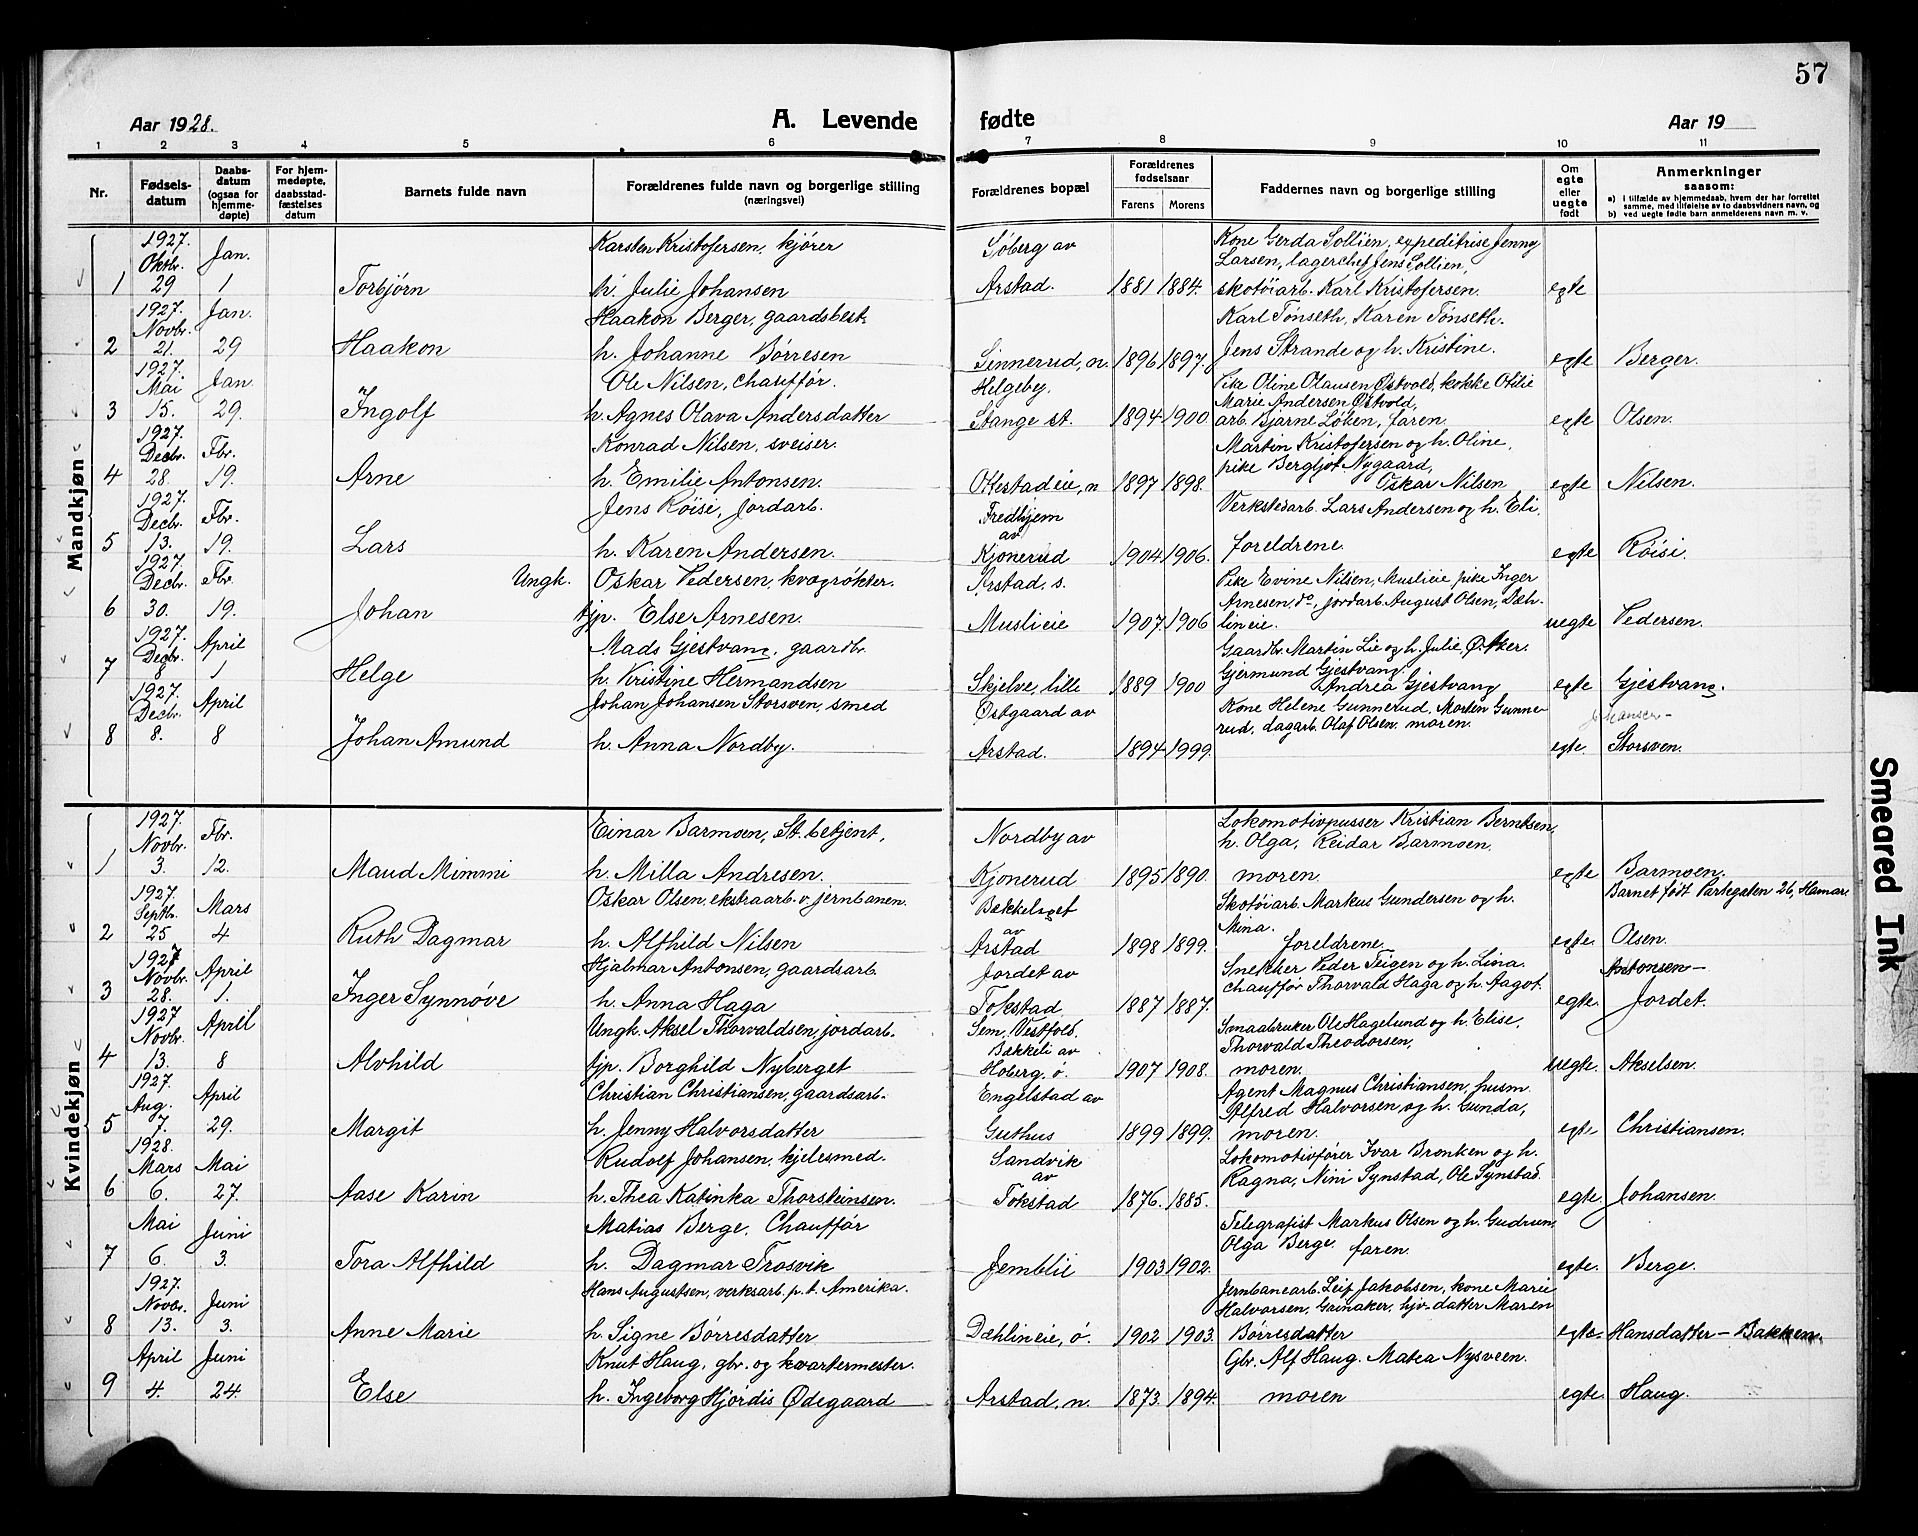 57
Aar 1928.
A. Levende
fødte
Aar 19
1 2 3 4 5 6 7 8 9 10 11
Nr.
Fødsels-
datum
Daabs-
datum
(ogsaa for
hjemme-
døpte)
For hjem-
medøpte,
daabsstad-
fæstelses
datum
Barnets fulde navn
Forældrenes fulde navn og borgerlige stilling
(næringsvei)
Forældrenes bopæl
Forældrenes
fødselsaar
Farens Morens
Faddernes navn og borgerlige stilling
Om
egte
eller
uegte
født
Anmerkninger
saasom:
a) i tilfælde av hjemmedaab, hvem der har forrettet
samme, med tilføielse av to daabsvidners navn, og
b) ved uegte fødte barn anmelderens navn m. v.
Mandkjøn
1927. Jan. Karsten Kristofersen, kjører Søberg av Kone Gerda Sollien, expeditrise Jenny
Oktbr. Larsen, lagerchef Jens Sollien,
1 29 1 Torbjørn h. Julie Johansen Arstad. 1881 1884. skotøiarb. Karl Kristofersen. egte
1927. Jan. Haakon Berger, gaardsbest. Karl Tønseth, Karen Tønseth.
Novbr.
2 21. 29 Haakon h. Johanne Børresen Sinnerud, n. 1896 1897. Jens Strande og h. Kristine. egte Berger.
1927. Jan. Ole Nilsen, chauffør. Helgeby. Pike Oline Olausen Østvold, kokke Otilie
Mai Marie Andersen Østvold,
3 15. 29. Ingolf h. Agnes Olava Andersdatter Stange st. 1894 1900 arb. Bjarne Løken, faren. egte Olsen.
1927. Fbr. Konrad Nilsen, sveiser. Martin Kristofersen og h. Oline,
Decbr. pike Bergljot Nygaard,
4 28. 19. Arne h. Emilie Antonsen. Ottestadeie, n 1897 1898. Oskar Nilsen egte Nilsen.
1927. Fbr. Jens Røise, Jordarb. Fredhjem Verkstedarb. Lars Andersen og h. Eli,
Decbr. av
5 13. 19. Lars h. Karen Andersen. Kjonerud 1904 1906. foreldrene. egte Røisi.
1927 Fbr. Ungk. Oskar Pedersen, kvægrøkter. Arstad. s. Pike Evine Nilsen, Muslieie pike Inger
Decbr. Arnesen, do, jordarb. August Olsen, Dæh-
6 30. 19. Johan tjp. Else Arnesen. Muslieie 1907. 1906 lineie. uegte Pedersen.
1927. April Mads Gjestvang, gaardbr. Gaardbr. Martin Lie og h. Julie,
Decbr. Gjermund Gjestvang,
7 8 1 Helge h. Kristine Hermandsen Skjelve, lille 1889 1900 Andrea Gjestvang egte Gjestvang.
1927. April Johan Johansen Storsven, smed Østgaard av Kone Helene Gunnerud, Morten Gunne-
Decbr. rud, dagarb. Olaf Olsen. moren. Johansen-
8 8. 8 Johan Amund h. Anna Nordby. Arstad. 1894 1999. egte. Storsven.
Kvindekjøn
1927. Fbr. Einar Barmoen, St. betjent, Nordby av Lokomotivpusser Kristian Berntsen,
Novbr. h. Olga, Reidar Barmoen.
1 3. 12. Maud Mimmi h. Milla Andresen. Kjonerud 1895 1890. moren. egte Barmoen.
1927. Mars Oskar Olsen, ekstraarb. v. jernbanen. Bækkelaget Skotøiarb. Markus Gundersen og h. Barnet født Parkgaten 26, Hamar.
Septbr. av Mina.
2 25 4 Ruth Dagmar h. Alfhild Nilsen Arstad 1898 1899. foreldrene. egte. Olsen.
1927 April Hjalmar Antonsen, gaardsarb. Jordet av Snekker Peder Teigen og h. Lina. Antonsen-
Novbr. chauffør Thorvald Haga og h. Aagot.
3 28. 1. Inger Synnøve h. Anna Haga Tokstad 1887 1887. egte. Jordet.
1927 April Ungk. Aksel Thorvaldsen, jordarb. Sem, Vestfold. Smaabruker Ole Hagelund og h. Elise,
Novbr. Bækkeli av Thorvald Theodorsen,
4 13. 8 Alvhild tjp. Borghild Nyberget Hoberg, ø. 1907 1908. moren. uegte. Akselsen.
1927. April Christian Christiansen, gaardsarb. Engelstad av Agent Magnus Christiansen, husm.
Aug. Alfred Halvorsen, og h. Gunda,
5 7. 29. Margit h. Jenny Halvorsdatter Guthus 1899 1899. moren. egte Christiansen.
1928. Rudolf Johansen, kjelesmed. Sandvik Lokomotivfører Ivar Bronken og h.
Mars Mai av Ragna, Nini Synstad, Ole Synstad.
6 6. 27. Aase Karin h. Thea Katinka Thorsteinsen. Tokstad 1876. 1885. egte. Johansen.
Mai Juni Matias Berge, Chauffør Telegrafist Markus Olsen og h. Gudrun,
Olga Berge.
7 6. 3. Tora Alfhild h. Dagmar Trosvik Jemblie 1903 1902. faren. egte. Berge.
1927. Hans Augustsen, verksarb. p. t. Amerika. Jernbanearb. Leif Jakobsen, kone Marie
Novbr. Juni Halvorsen, Gainaker, hjv. datter Maren
8 13. 3. Anne Marie h. Signe Børresdatter Dæhlineie, ø. 1902 1903. Børresdatter egte. Hansdatter - Bakken.
April Juni Knut Haug, gbr. og kvartermester. Gbr. Alf Haug. Matea Nysveen.
9 4. 24. Else h. Ingeborg Hjørdis Ødegaard Arstad, n. 1873. 1894. moren egte. Haug.
Smeared Ink